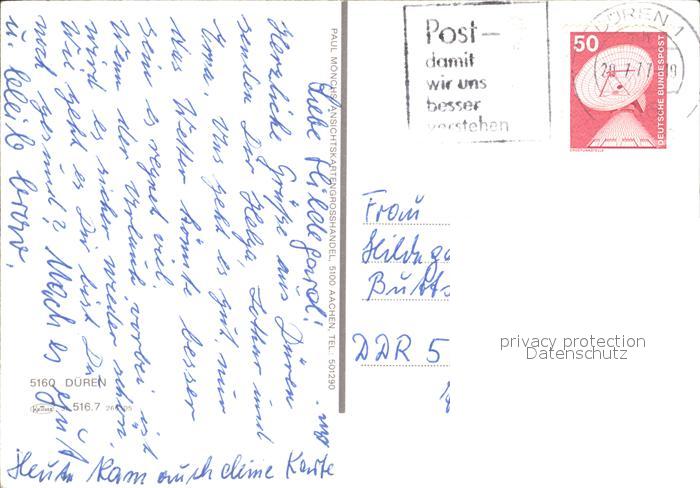 Liebe Hildegard!
Herzliche Grüße aus Düren
senden Dir Helga, Lothar und
Erna. Uns geht es gut, nur
das Wetter könnte besser
sein es regnet viel.
Wenn der Urlaub vorbei ist
wird es sicher wieder schön.
Wie geht es Dir bist Du
noch gesund? Mach es gut
u. bleib brav.
Heute kam auch deine Karte
PAUL MÖNCHS ANSICHTSKARTENGROSSHANDEL, 5100 AACHEN, TEL.: 501290
5160 DÜREN
516.7
Post-
damit
wir uns
besser
verstehen
DÜREN 1
50
DEUTSCHE BUNDESPOST
Frau
Hildega
Butt
DDR 5
privacy protection
Datenschutz